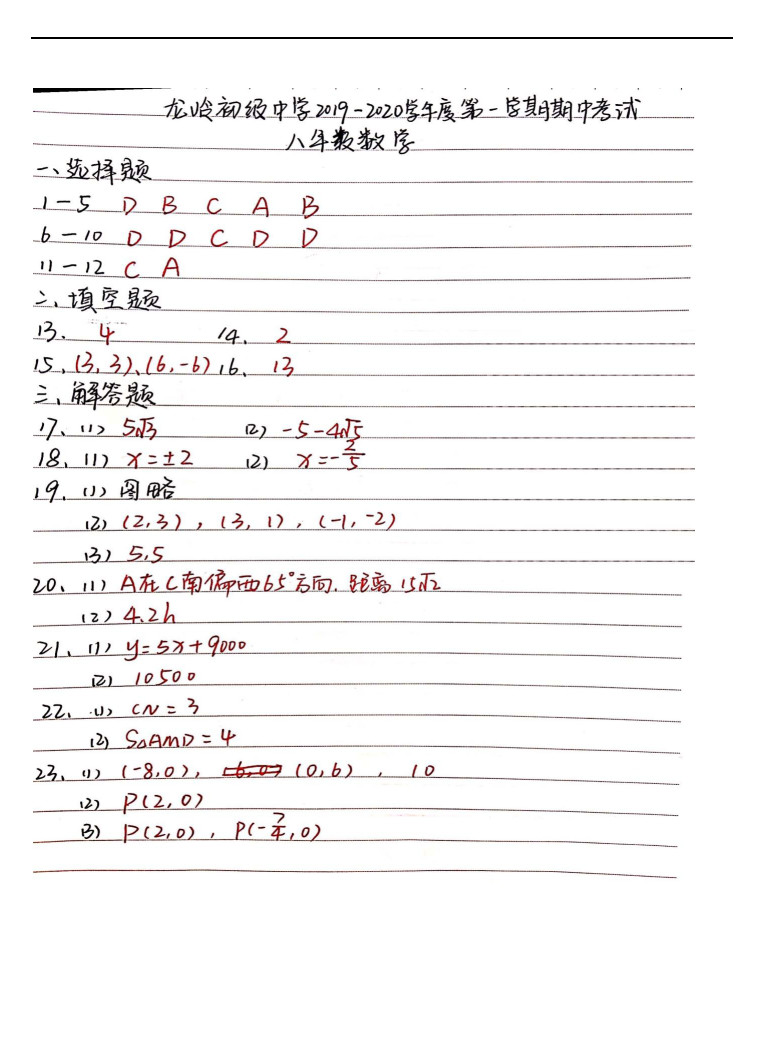 龙岭初级中学2019-2020学年度第一学期期中考试
八年数数学
一、选择题
1-5 D B C A B
6-10 D D C D D
11-12 C A
二、填空题
13、 4 14、 2
15、(3,3)、(6,-6) 16、 13
三、解答题
17、(1) 5√3 (2) -5-4√5
18、(1) x=±2 (2) x=-2/5
19、(1) 图略
(2) (2,3), (3,1), (-1,-2)
(3) 5.5
20、(1) A在C南偏西65°方向,距离15√2
(2) 4.2h
21、(1) y=5x+9000
(2) 10500
22、(1) CN=3
(2) S△AMD=4
23、(1) (-8,0), (0,6), 10
(2) P(2,0)
(3) P(2,0), P(-7/4,0)